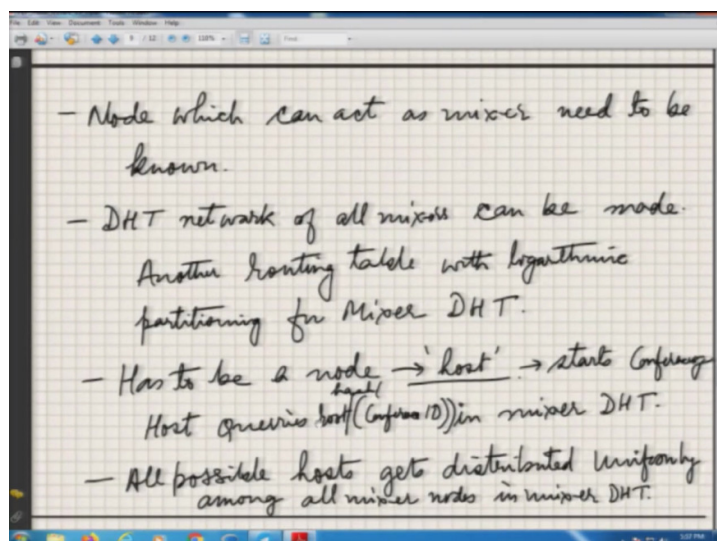 File Edit View Document Tools Window Help
9 / 12 110% Find
- Node which can act as mixer need to be
known.
- DHT network of all mixers can be made.
Another routing table with logarthmic
partitioning for Mixer DHT.
- Has to be a node → 'host' → starts Conference
hash(
Host queries root((Conference ID)) in mixer DHT.
- All possible hosts gets distributed uniformly
among all mixer nodes in mixer DHT.
5:07 PM